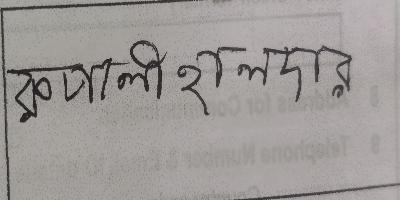 রুপালী হালদার